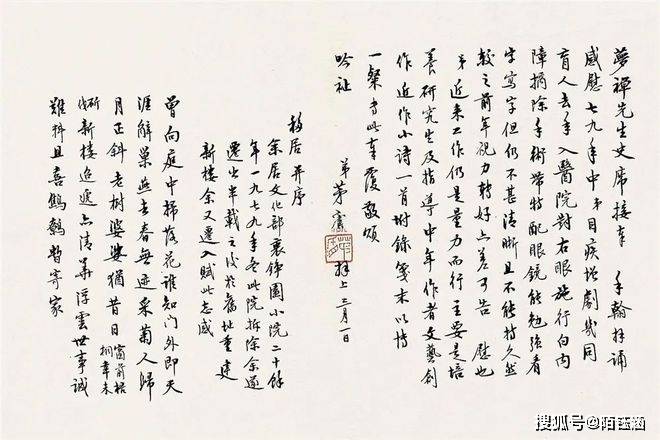 夢禪先生史席接奉 手翰拜诵
感慰七九年中弟目疾增劇幾同
盲人去年入醫院對右眼施行白内
障摘除手術带特配眼鏡能勉强看
字寫字但仍不甚清晰且不能持久然
較之前年視力轉好亦差可告 慰也
弟近来工作仍是量力而行主要是培
養研究生及指導中年作者文藝創
作近作小诗一首附錄箋末以博
一粲专此奉覆敬頌
吟祉
弟茅 拜上三月一日
移居并序
余居文化部 铮園小院二十餘
年一九七九年冬此院拆除余遂
遷出半載之後於舊址重建
新樓余又遷入賦此志感
曾向庭中掃落花谁知門外即天
涯辭巢燕去春無迹采菊人歸
月正斜老樹婆娑猶昔日窗前梧桐幸未
斫伐新樓迢遞亦清華浮雲世事誠
難料且喜鹪鹩暂寄家
搜狐号@陌钰涵